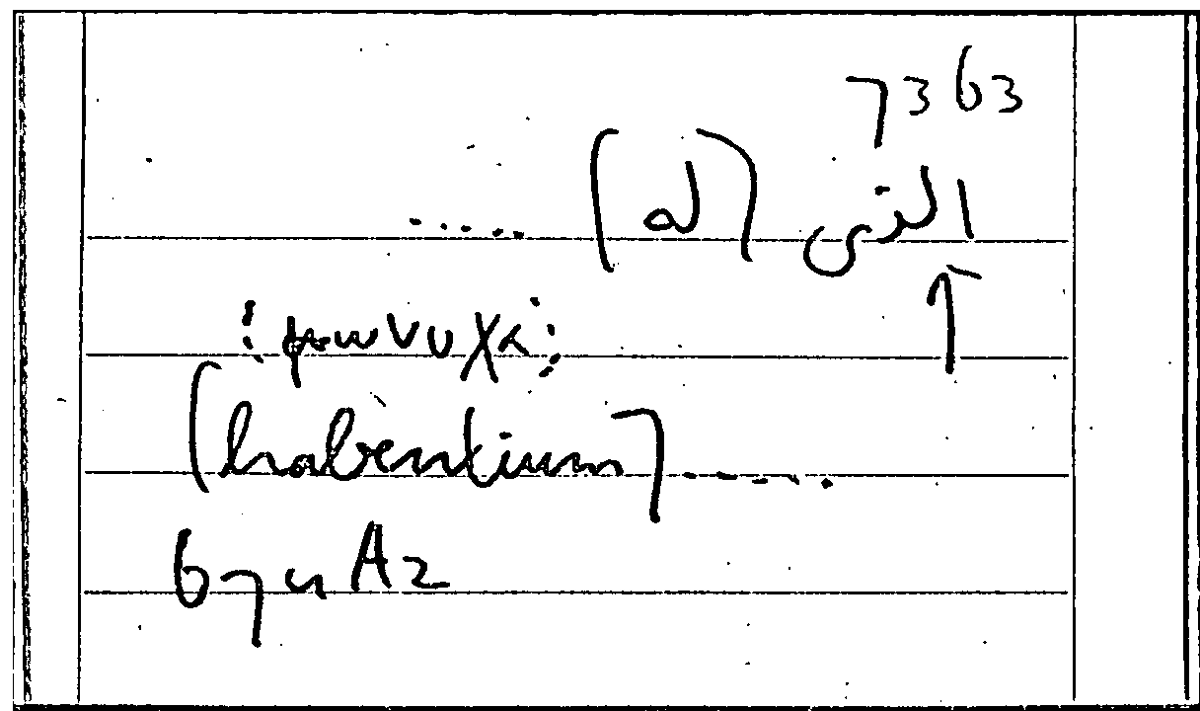 7363
التى (له) .....
: μωνυχα :
(habentium) .....
67 u A2